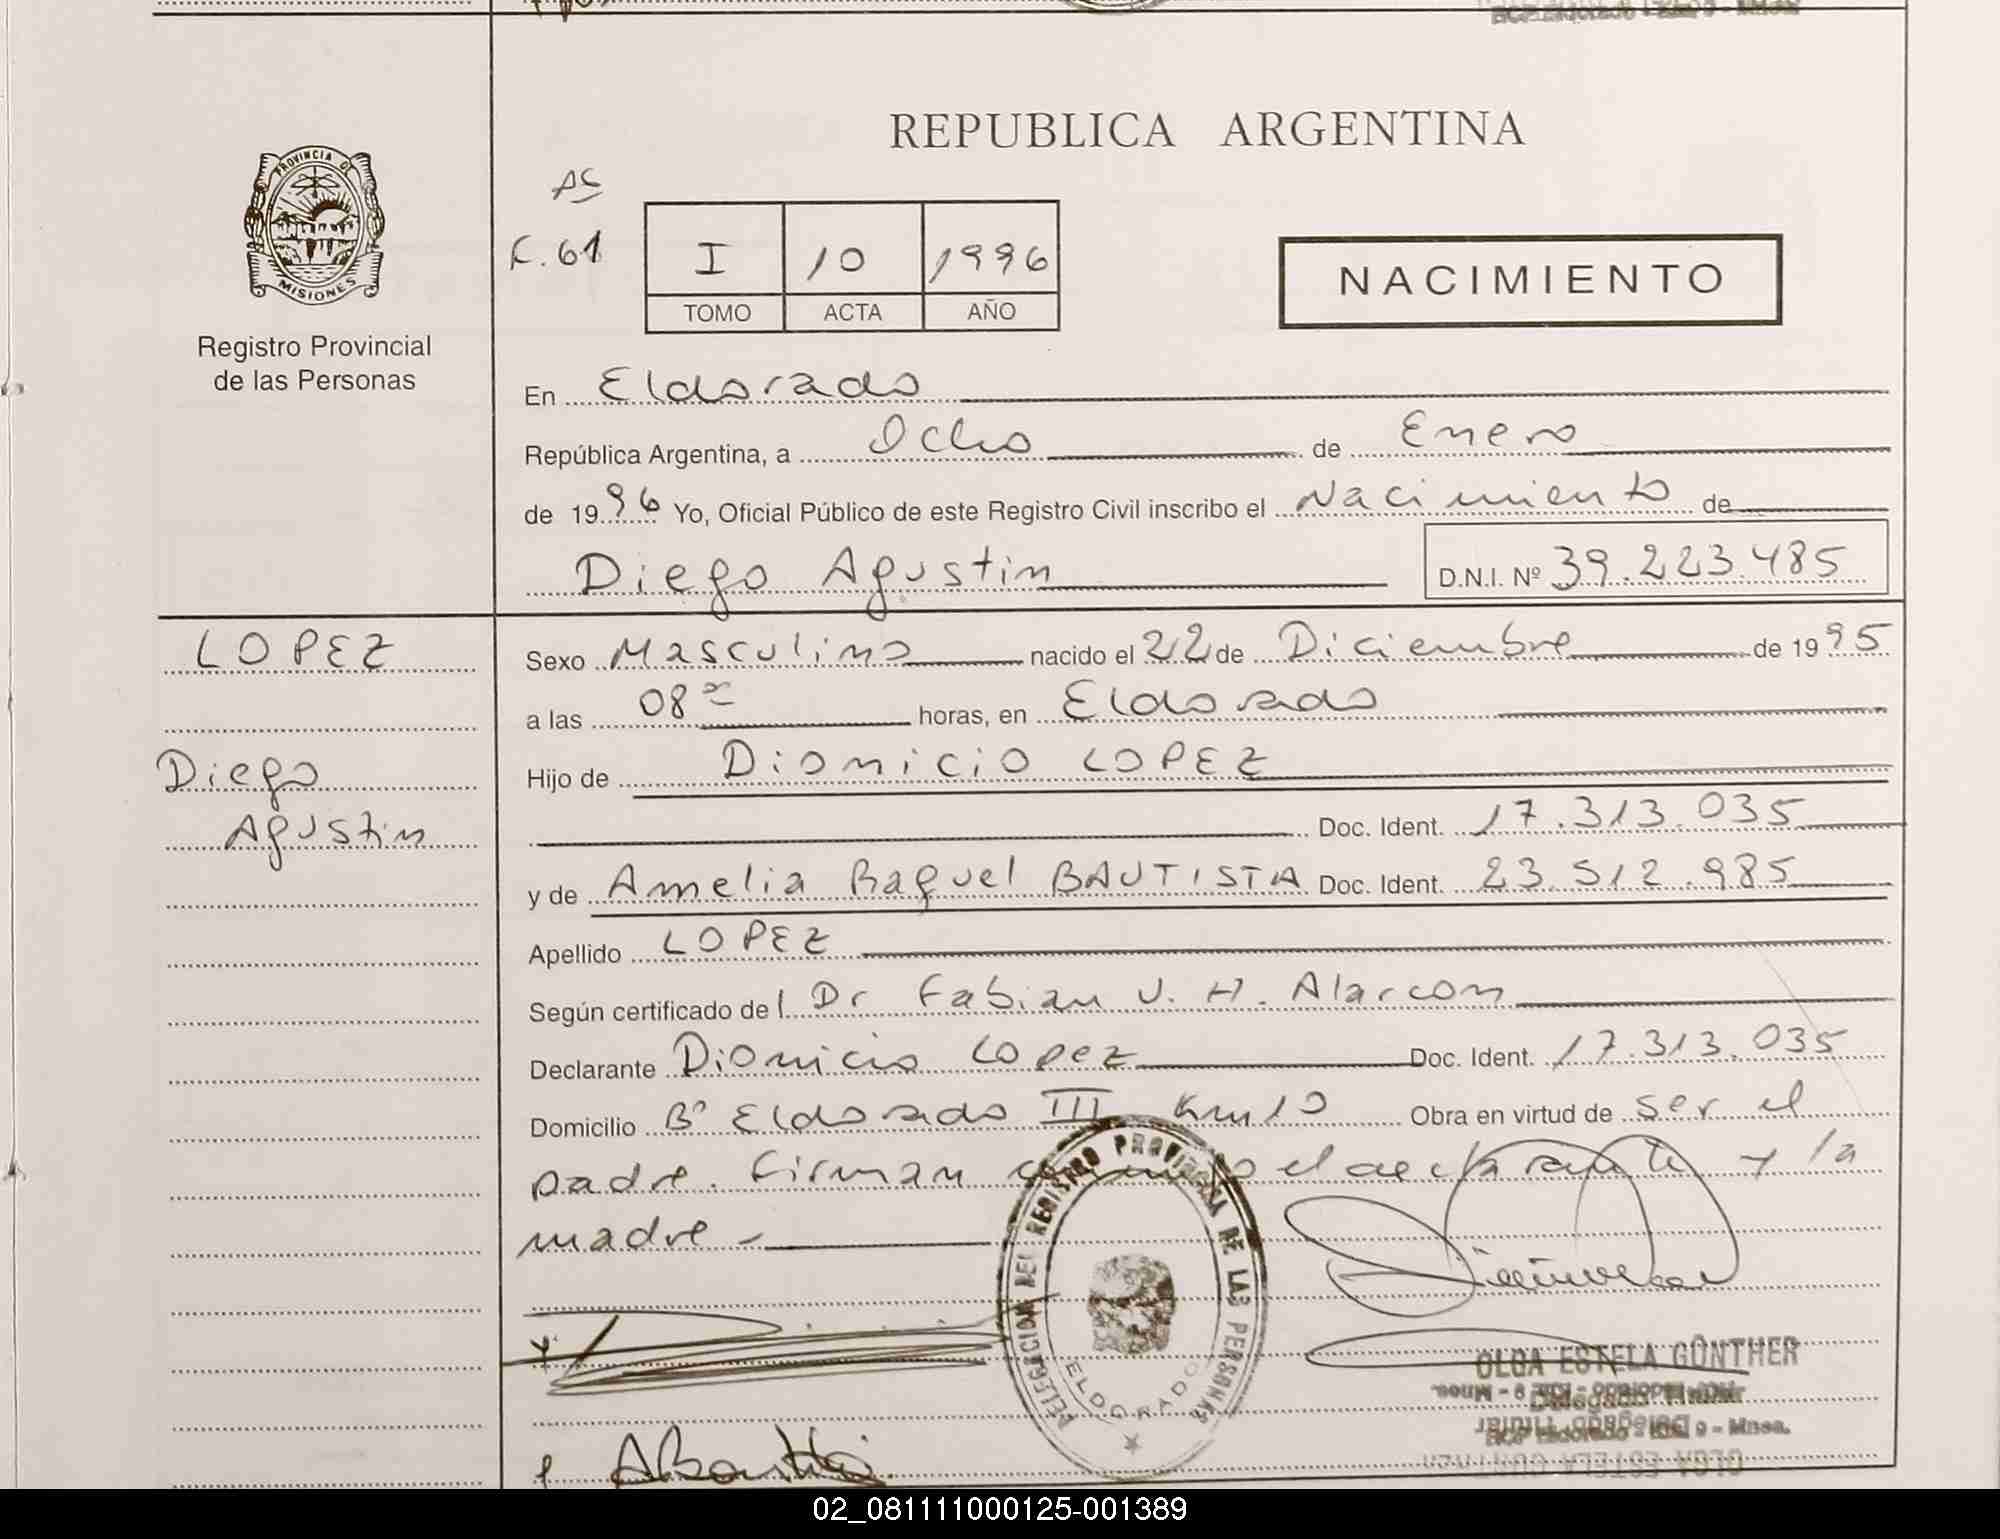 REPUBLICA ARGENTINA
PROVINCIA DE MISIONES
Registro Provincial
de las Personas
AS
F. 61
I 10 1996
TOMO ACTA AÑO
NACIMIENTO
En Eldorado
República Argentina, a Ocho de Enero
de 1996 Yo, Oficial Público de este Registro Civil inscribo el Nacimiento de
Diego Agustin D.N.I. Nº 39.223.485
LOPEZ
Diego
Agustin
Sexo Masculino nacido el 22 de Diciembre de 1995
a las 08 horas, en Eldorado
Hijo de Dionicio LOPEZ
Doc. Ident. 17.313.035
y de Amelia Raquel BAUTISTA Doc. Ident. 23.512.985
Apellido LOPEZ
Según certificado de l Dr Fabian J. H. Alarcon
Declarante Dionicio Lopez Doc. Ident. 17.313.035
Domicilio Bº Eldorado III Km 10 Obra en virtud de ser el
padre. Firman conmigo el declarante y la
madre -
DELEGACION DEL REGISTRO PROVINCIAL DE LAS PERSONAS
ELDORADO
OLGA ESTELA GÜNTHER
Delegado Titular
ABautista
02_081111000125-001389